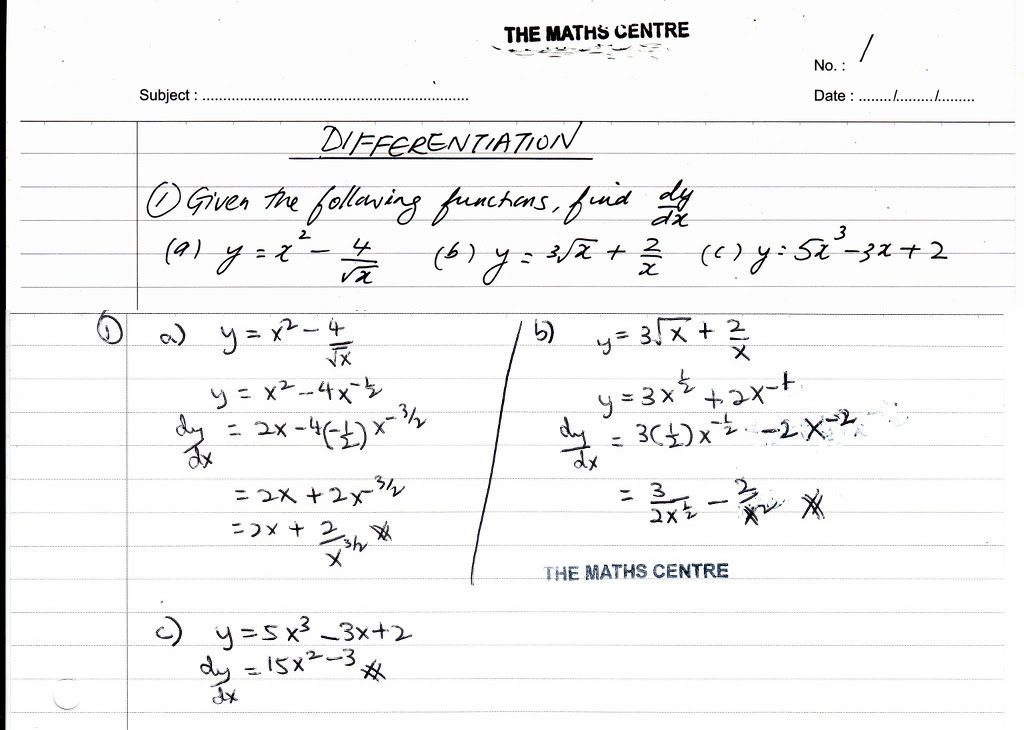 THE MATHS CENTRE
No. : 1
Subject : ............................................................
Date : ......../........./.........
DIFFERENTIATION
① Given the following functions, find dy/dx
(a) y = x² - 4/√x (b) y = 3√x + 2/x (c) y = 5x³ - 3x + 2
① a) y = x² - 4/√x
y = x² - 4x^-1/2
dy/dx = 2x - 4(-1/2) x^-3/2
= 2x + 2x^-3/2
= 2x + 2/x^3/2
b) y = 3√x + 2/x
y = 3x^1/2 + 2x^-1
dy/dx = 3(1/2) x^-1/2 - 2x^-2
= 3/2x^1/2 - 2/x²
THE MATHS CENTRE
c) y = 5x³ - 3x + 2
dy/dx = 15x² - 3